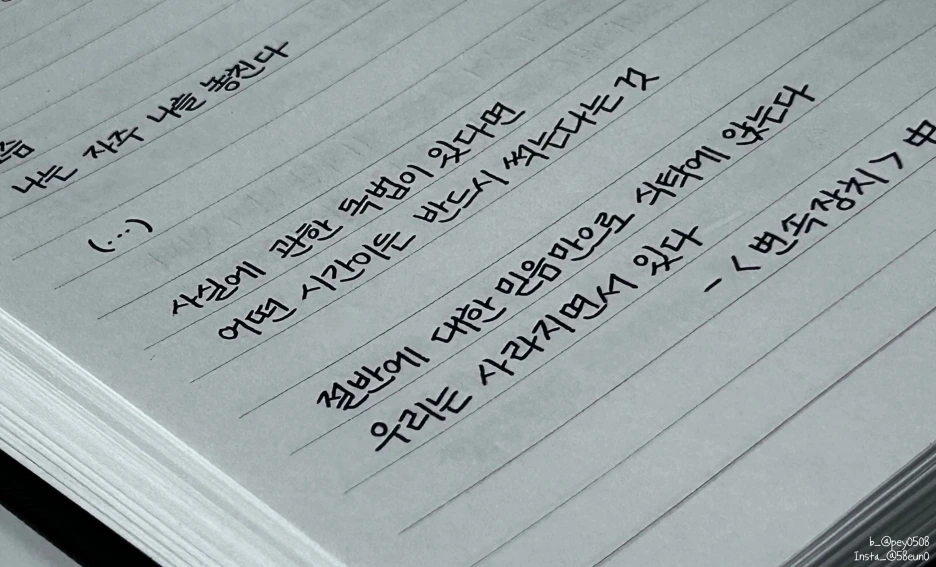 나는 자주 나를 놓친다
(...)
사실에 관한 독법이 있다면
어떤 시간이든 반드시 썩는다는 것
절반에 대한 믿음만으로 식탁에 앉는다
우리는 사라지면서 있다
- <변속장치> 中
b_@pey0508
Insta_@58eun0